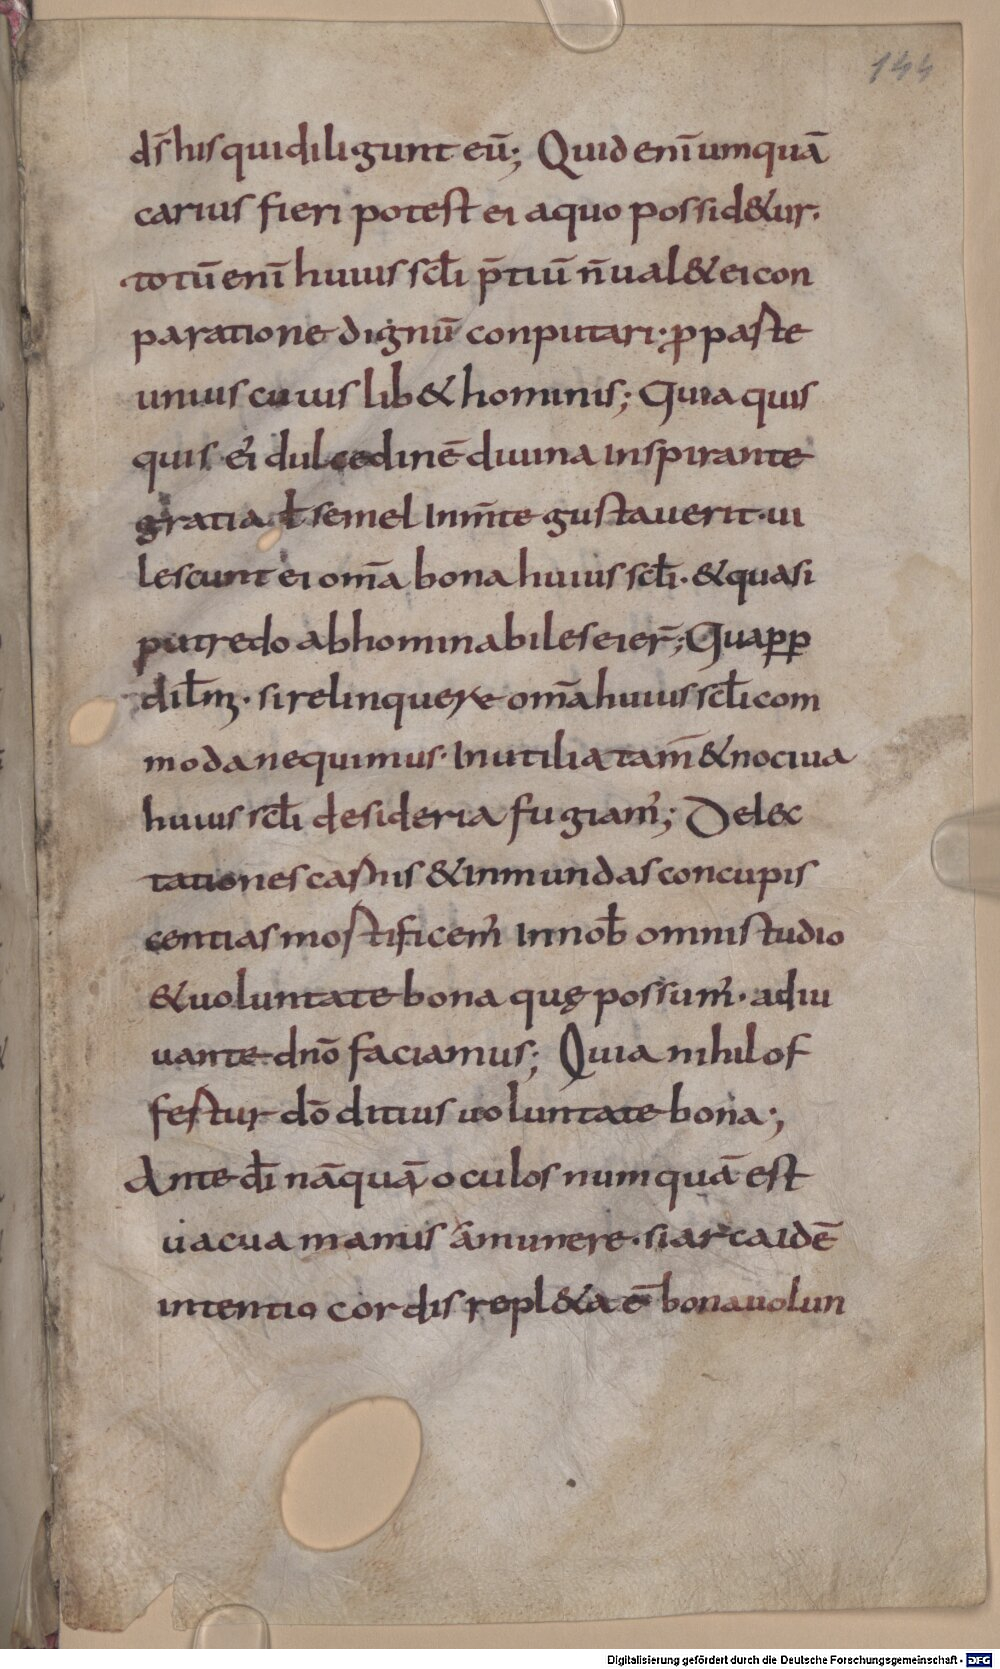 144
ds̄ his qui diligunt eū; Quid enī umquā
carius fieri potest ei a quo possid&ur.
totū enī huius scl̄i p̄tiū n̄ ual& ei con
paratione dignū conputari. ꝓ paste
unius cuius lib& hominis; Quia quis
quis ei dulcedinē diuina inspirante
gratia ł semel in m̄te gustauerit. ui
lescunt ei om̄a bona huius scl̄i. & quasi
putredo abhominabiles ei er̄; Quapp
dil̄m. si relinquere om̄a huius scl̄i com
moda nequimus. Inutilia tam̄ & nociua
huius scl̄i desideria fugiam̄; Delec
tationes carnis & inmundas concupis
centias mortificem̄ In nob̄ omni studio
& uoluntate bona quę possum̄. adiu
uante dn̄o faciamus; Quia nihil of
fertur dō ditius uoluntate bona;
Ante dī nāquā oculos numquā est
uacua manus a munere. si arca idē
intentio cordis repl&a ē bona uolun
Digitalisierung gefördert durch die Deutsche Forschungsgemeinschaft - DFG